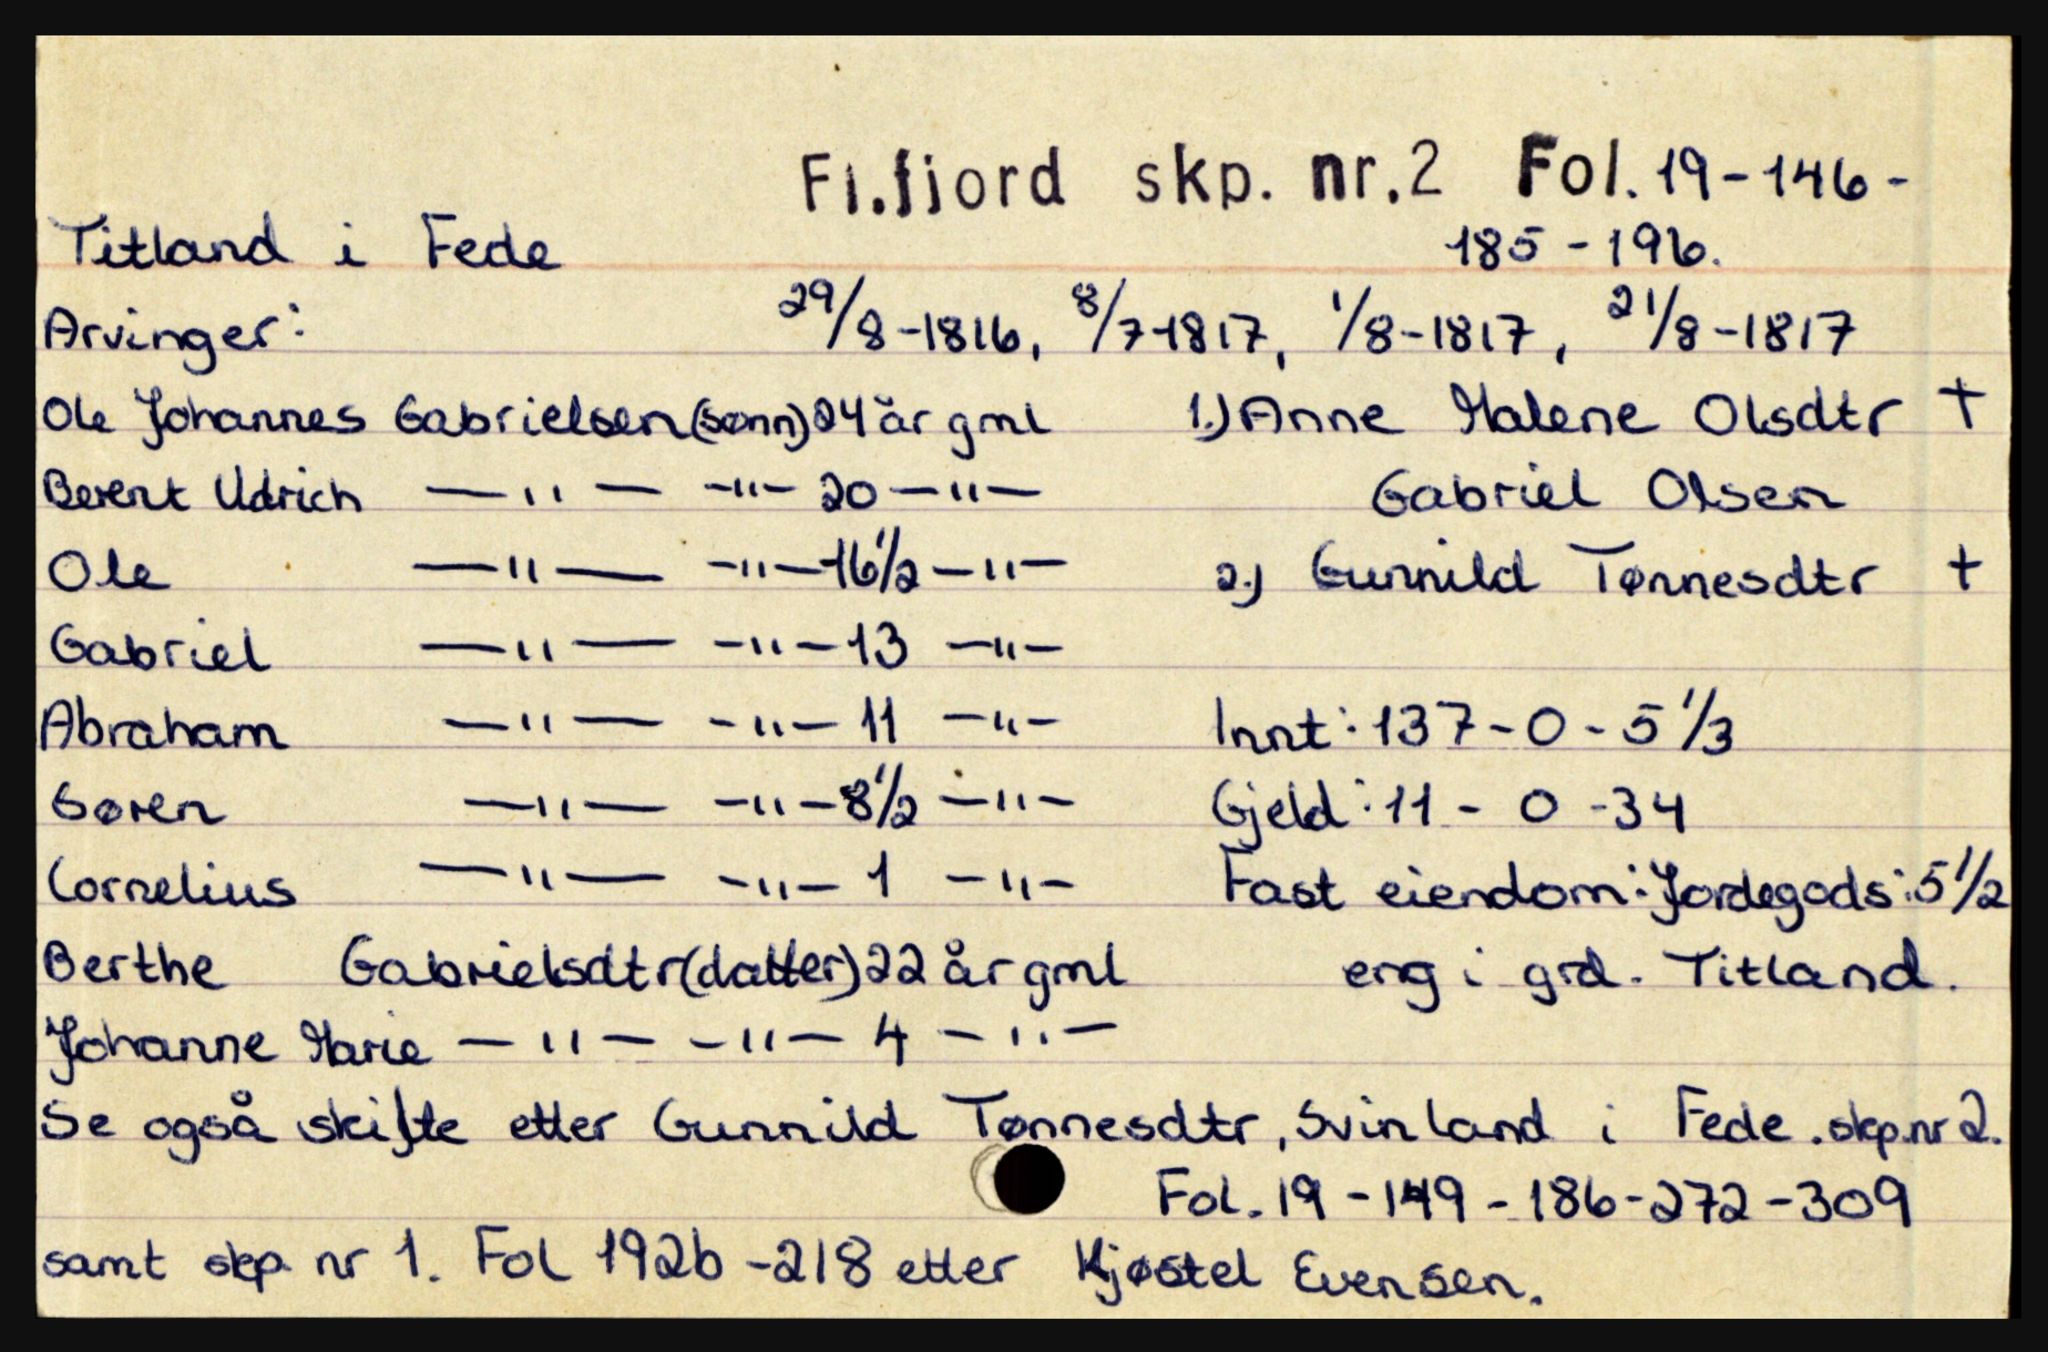 Fl.fjord skp. nr.2 Fol. 19-146-
Titland i Fede 185-196.
Arvinger: 29/8-1816, 8/7-1817, 1/8-1817, 21/8-1817
Ole Johannes Gabrielsen (sønn) 24 år gml 1.) Anne Malene Olsdtr †
Berent Udrich —"— -"- 20 —"— Gabriel Olsen
Ole —"— -"- 16 1/2 —"— 2.) Gunnild Tønnesdtr †
Gabriel —"— -"- 13 -"-
Abraham —"— -"- 11 -"- Innt: 137-0-5 1/3
Søren —"— -"- 8 1/2 -"- Gjeld: 11-0-34
Cornelius —"— -"- 1 -"- Fast eiendom: Jordegods: 5 1/2
Berthe Gabrielsdtr (datter) 22 år gml eng i grd. Titland.
Johanne Marie —"— -"- 4 -"-
Se også skifte etter Gunnild Tønnesdtr, Svinland i Fede. skp.nr 2.
Fol. 19-149-186-272-309
samt skp nr 1. Fol 192b-218 etter Kjøstel Evensen.